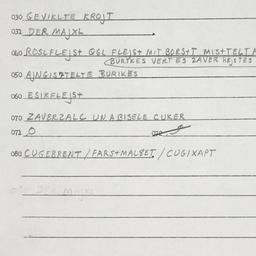 030 GEVIKLTE KROJT
031 DER MAJXL
040 ROSLFLEJSH OGL FLEJSH MIT BORSHT MISHTELTA
(BURIKES VERT ES ZAVER HEJSTES
050 AJNGISHTELTE BURIKES
060 ESIKFLEJSH
070 ZAVERZALC UN A BISELE CUKER
071 O
072
080 CUGEBRENT / FARSHMALBET / CUGIXAPT